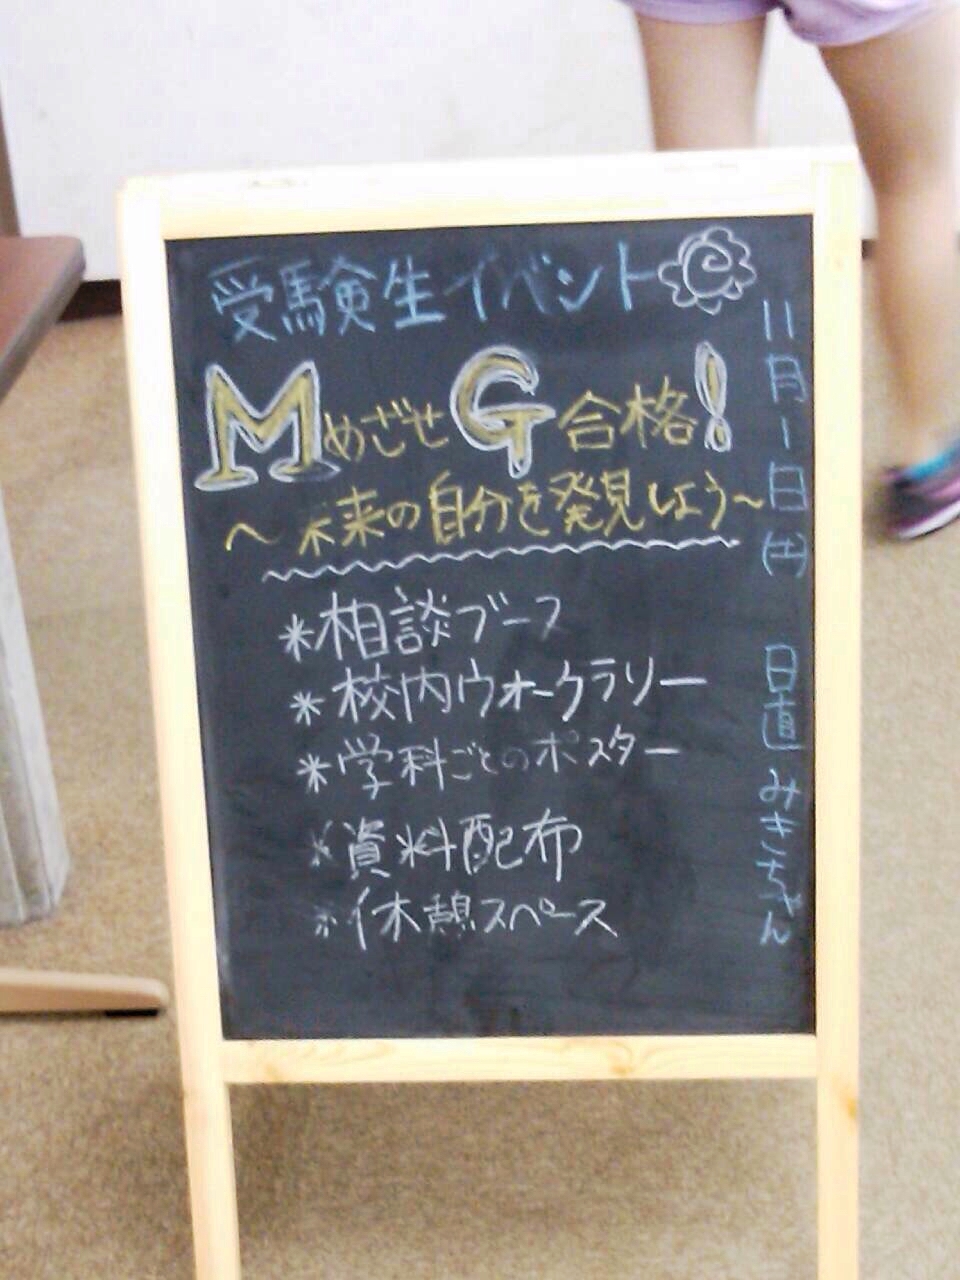 受験生イベント
Mめざせ G合格!
〜未来の自分を発見しよう〜
*相談ブース
*校内ウォークラリー
*学科ごとのポスター
*資料配布
*休憩スペース
11月1日(土) 日直 みきちゃん